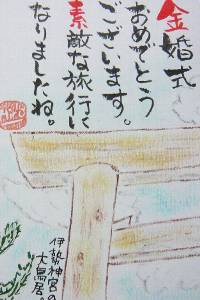 金婚式
おめでとう
ございます。
素敵な旅行に
なりましたね。
伊勢神宮の
大鳥居。